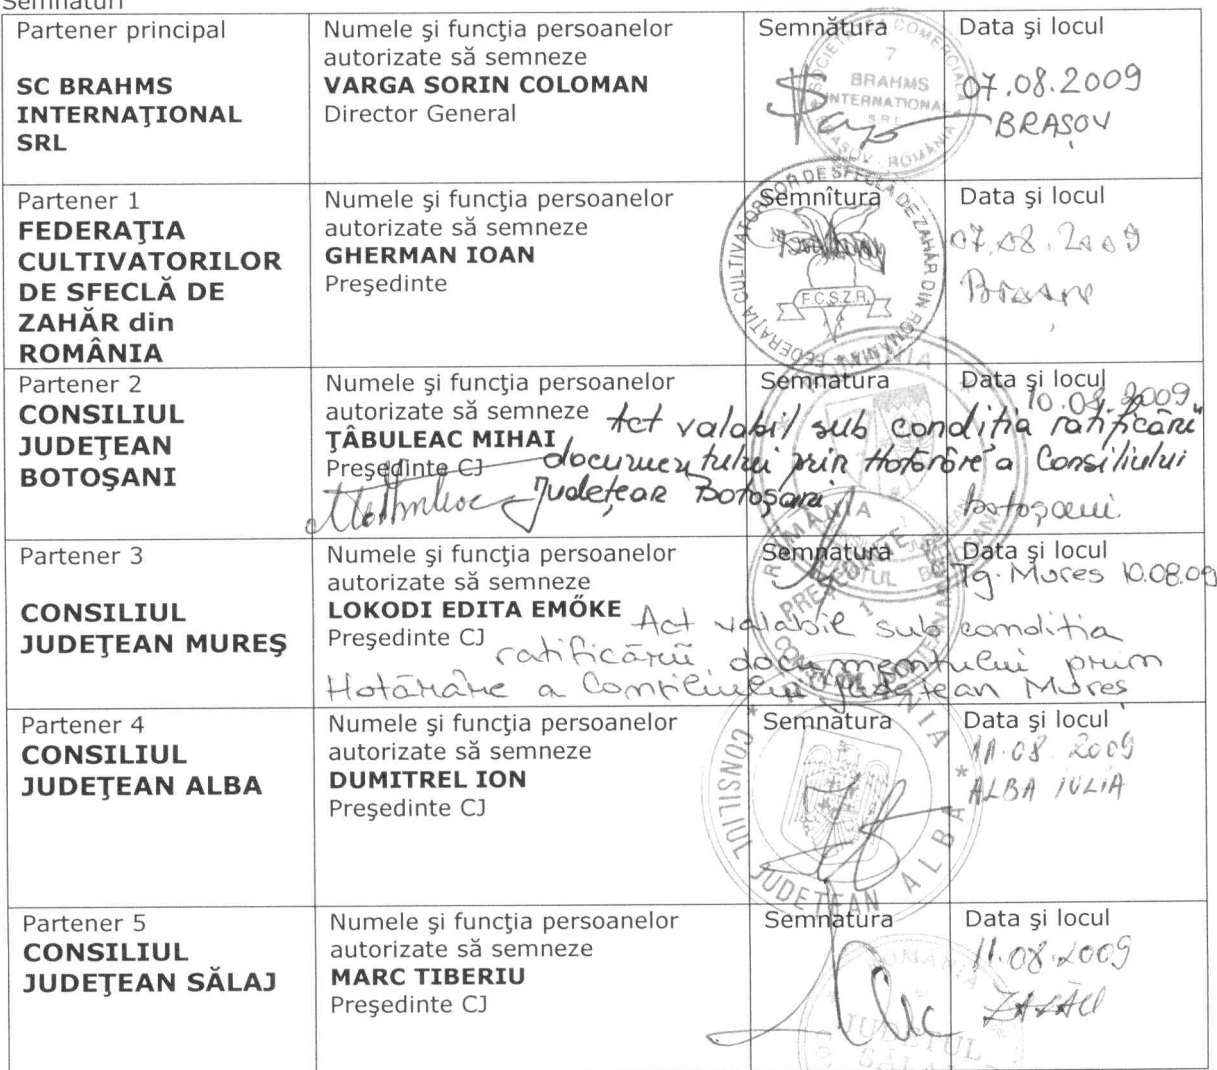 Semnături
Partener principal
SC BRAHMS
INTERNAŢIONAL
SRL
Numele şi funcţia persoanelor
autorizate să semneze
VARGA SORIN COLOMAN
Director General
Semnătura
SOCIETATEA COMERCIALĂ
7
BRAHMS
INTERNATIONAL
S.R.L.
BRAŞOV - ROMÂNIA
Data şi locul
07.08.2009
BRAŞOV
Partener 1
FEDERAŢIA
CULTIVATORILOR
DE SFECLĂ DE
ZAHĂR din
ROMÂNIA
Numele şi funcţia persoanelor
autorizate să semneze
GHERMAN IOAN
Preşedinte
Semnîtura
FEDERAŢIA CULTIVATORILOR DE SFECLĂ DE ZAHĂR DIN ROMÂNIA
F.C.S.Z.R.
Data şi locul
07.08.2009
Partener 2
CONSILIUL
JUDEŢEAN
BOTOŞANI
Numele şi funcţia persoanelor
autorizate să semneze
ŢÂBULEAC MIHAI
Preşedinte CJ
Semnatura
Data şi locul
10.08.2009
Act valabil sub condiţia ratificării
documentului prin Hotărâre a Consiliului
Judeţean Botoşani
Botoşani.
Partener 3
CONSILIUL
JUDEŢEAN MUREŞ
Numele şi funcţia persoanelor
autorizate să semneze
LOKODI EDITA EMŐKE
Preşedinte CJ
Semnatura
ROMÂNIA
PREŞEDINTE
1
Data şi locul
Tg. Mures 10.08.09
Act valabil sub conditia
ratificării documentului prin
Hotărâre a Consiliului Judeţean Mureş
Partener 4
CONSILIUL
JUDEŢEAN ALBA
Numele şi funcţia persoanelor
autorizate să semneze
DUMITREL ION
Preşedinte CJ
Semnatura
ROMÂNIA
CONSILIUL JUDEŢEAN ALBA
Data şi locul
11.08.2009
ALBA IULIA
Partener 5
CONSILIUL
JUDEŢEAN SĂLAJ
Numele şi funcţia persoanelor
autorizate să semneze
MARC TIBERIU
Preşedinte CJ
Semnatura
ROMÂNIA
JUDEŢUL
SĂLAJ
Data şi locul
11.08.2009
ZALĂU